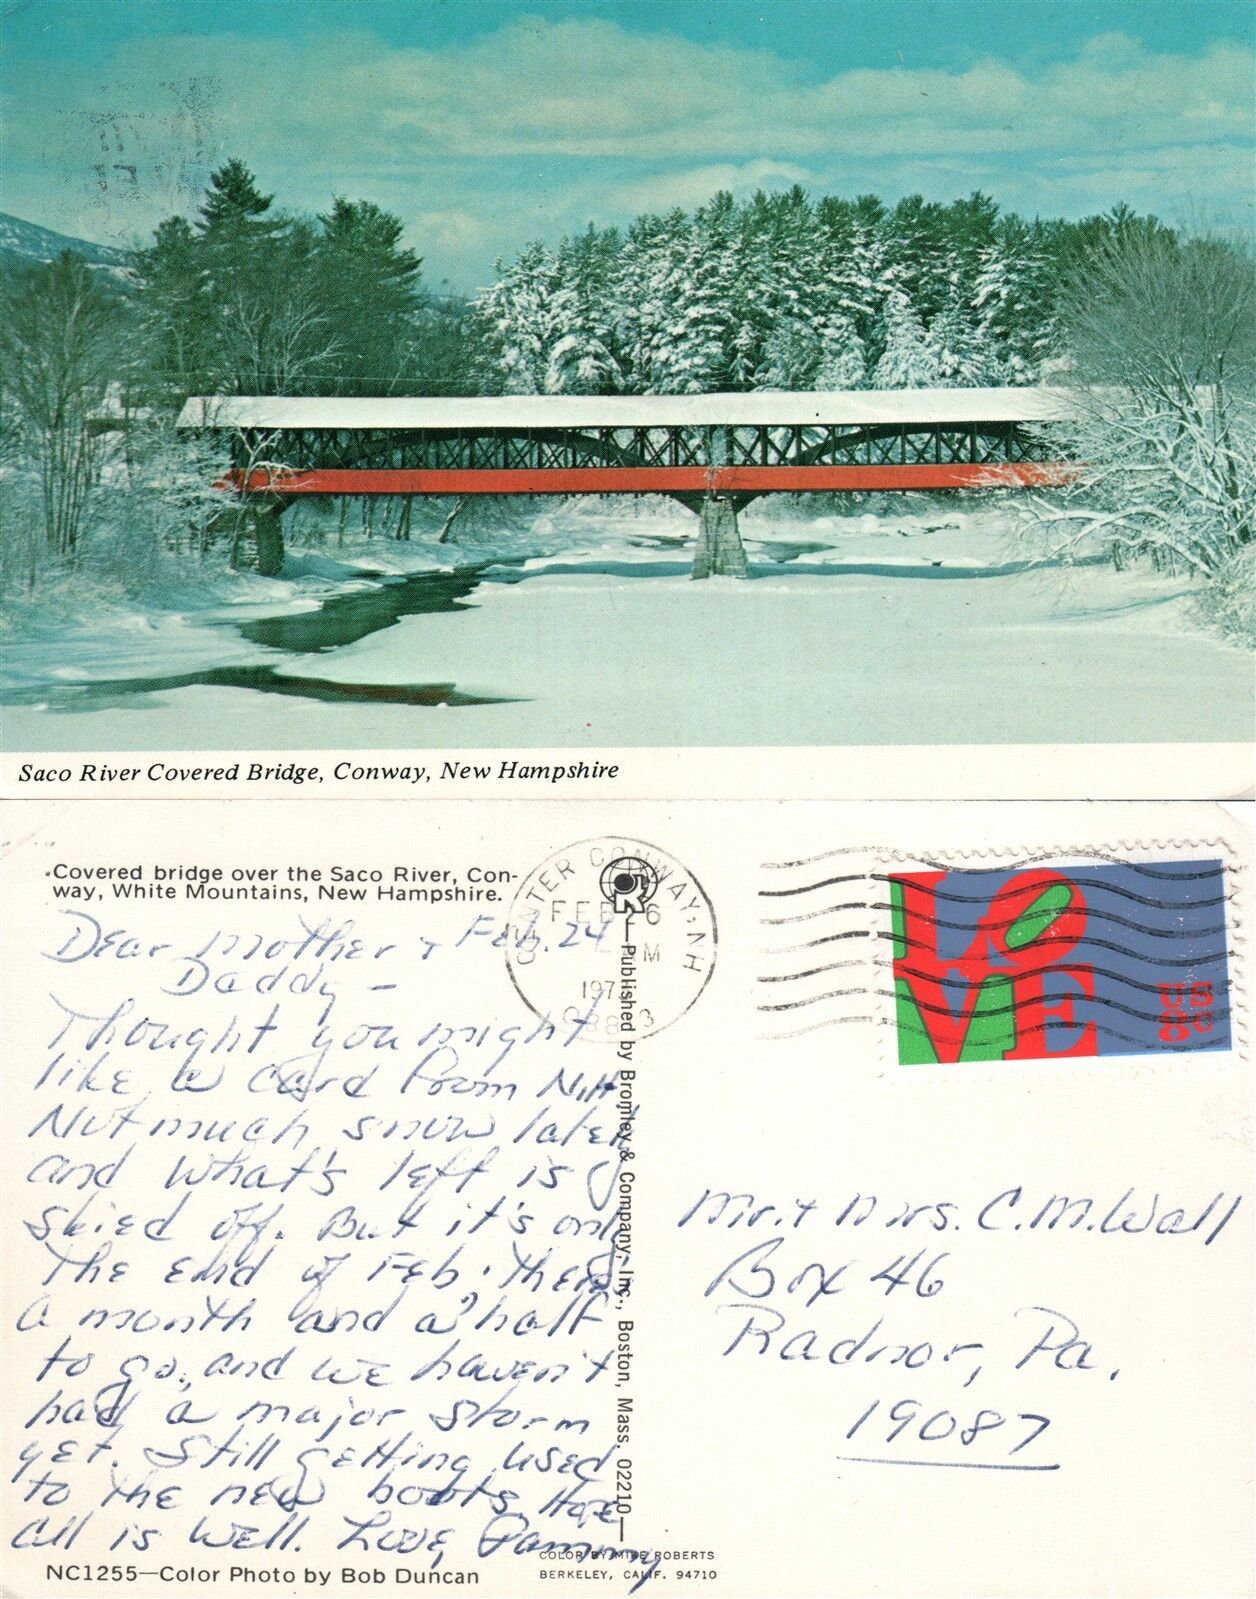 Saco River Covered Bridge, Conway, New Hampshire
Covered bridge over the Saco River, Con-
way, White Mountains, New Hampshire.
Feb. 24
Dear Mother +
Daddy -
Thought you might
like a card from N.H.
Not much snow lately
and what's left is
skied off. But it's only
the end of Feb. There's
a month and a half
to go, and we haven't
had a major storm
yet. Still getting used
to the new boots. Hope
all is well. Love, Pammy
NC1255—Color Photo by Bob Duncan
Published by Bromley & Company, Inc., Boston, Mass. 02210
COLOR BY MIKE ROBERTS
BERKELEY, CALIF. 94710
CENTER CONWAY, NH
FEB 26
M
197
LOVE
US
8c
Mr. + Mrs. C. M. Wall
Box 46
Radnor, Pa.
19087